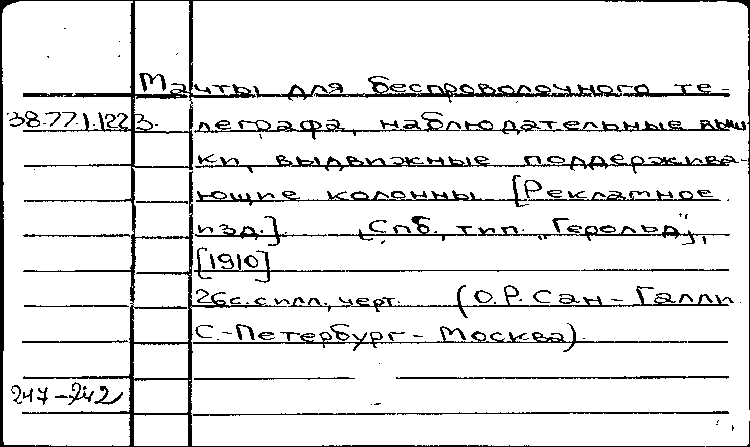 Мачты для беспроволочного те-
38.77.1.122 3. леграфа, наблюдательные выш-
ки, выдвижные поддержива-
ющие колонны [Рекламное
изд.] [Спб, тип. "Герольд"],
[1910]
26с. с илл., черт. (О.Р. Сан-Галли
С.-Петербург - Москва)
247-242